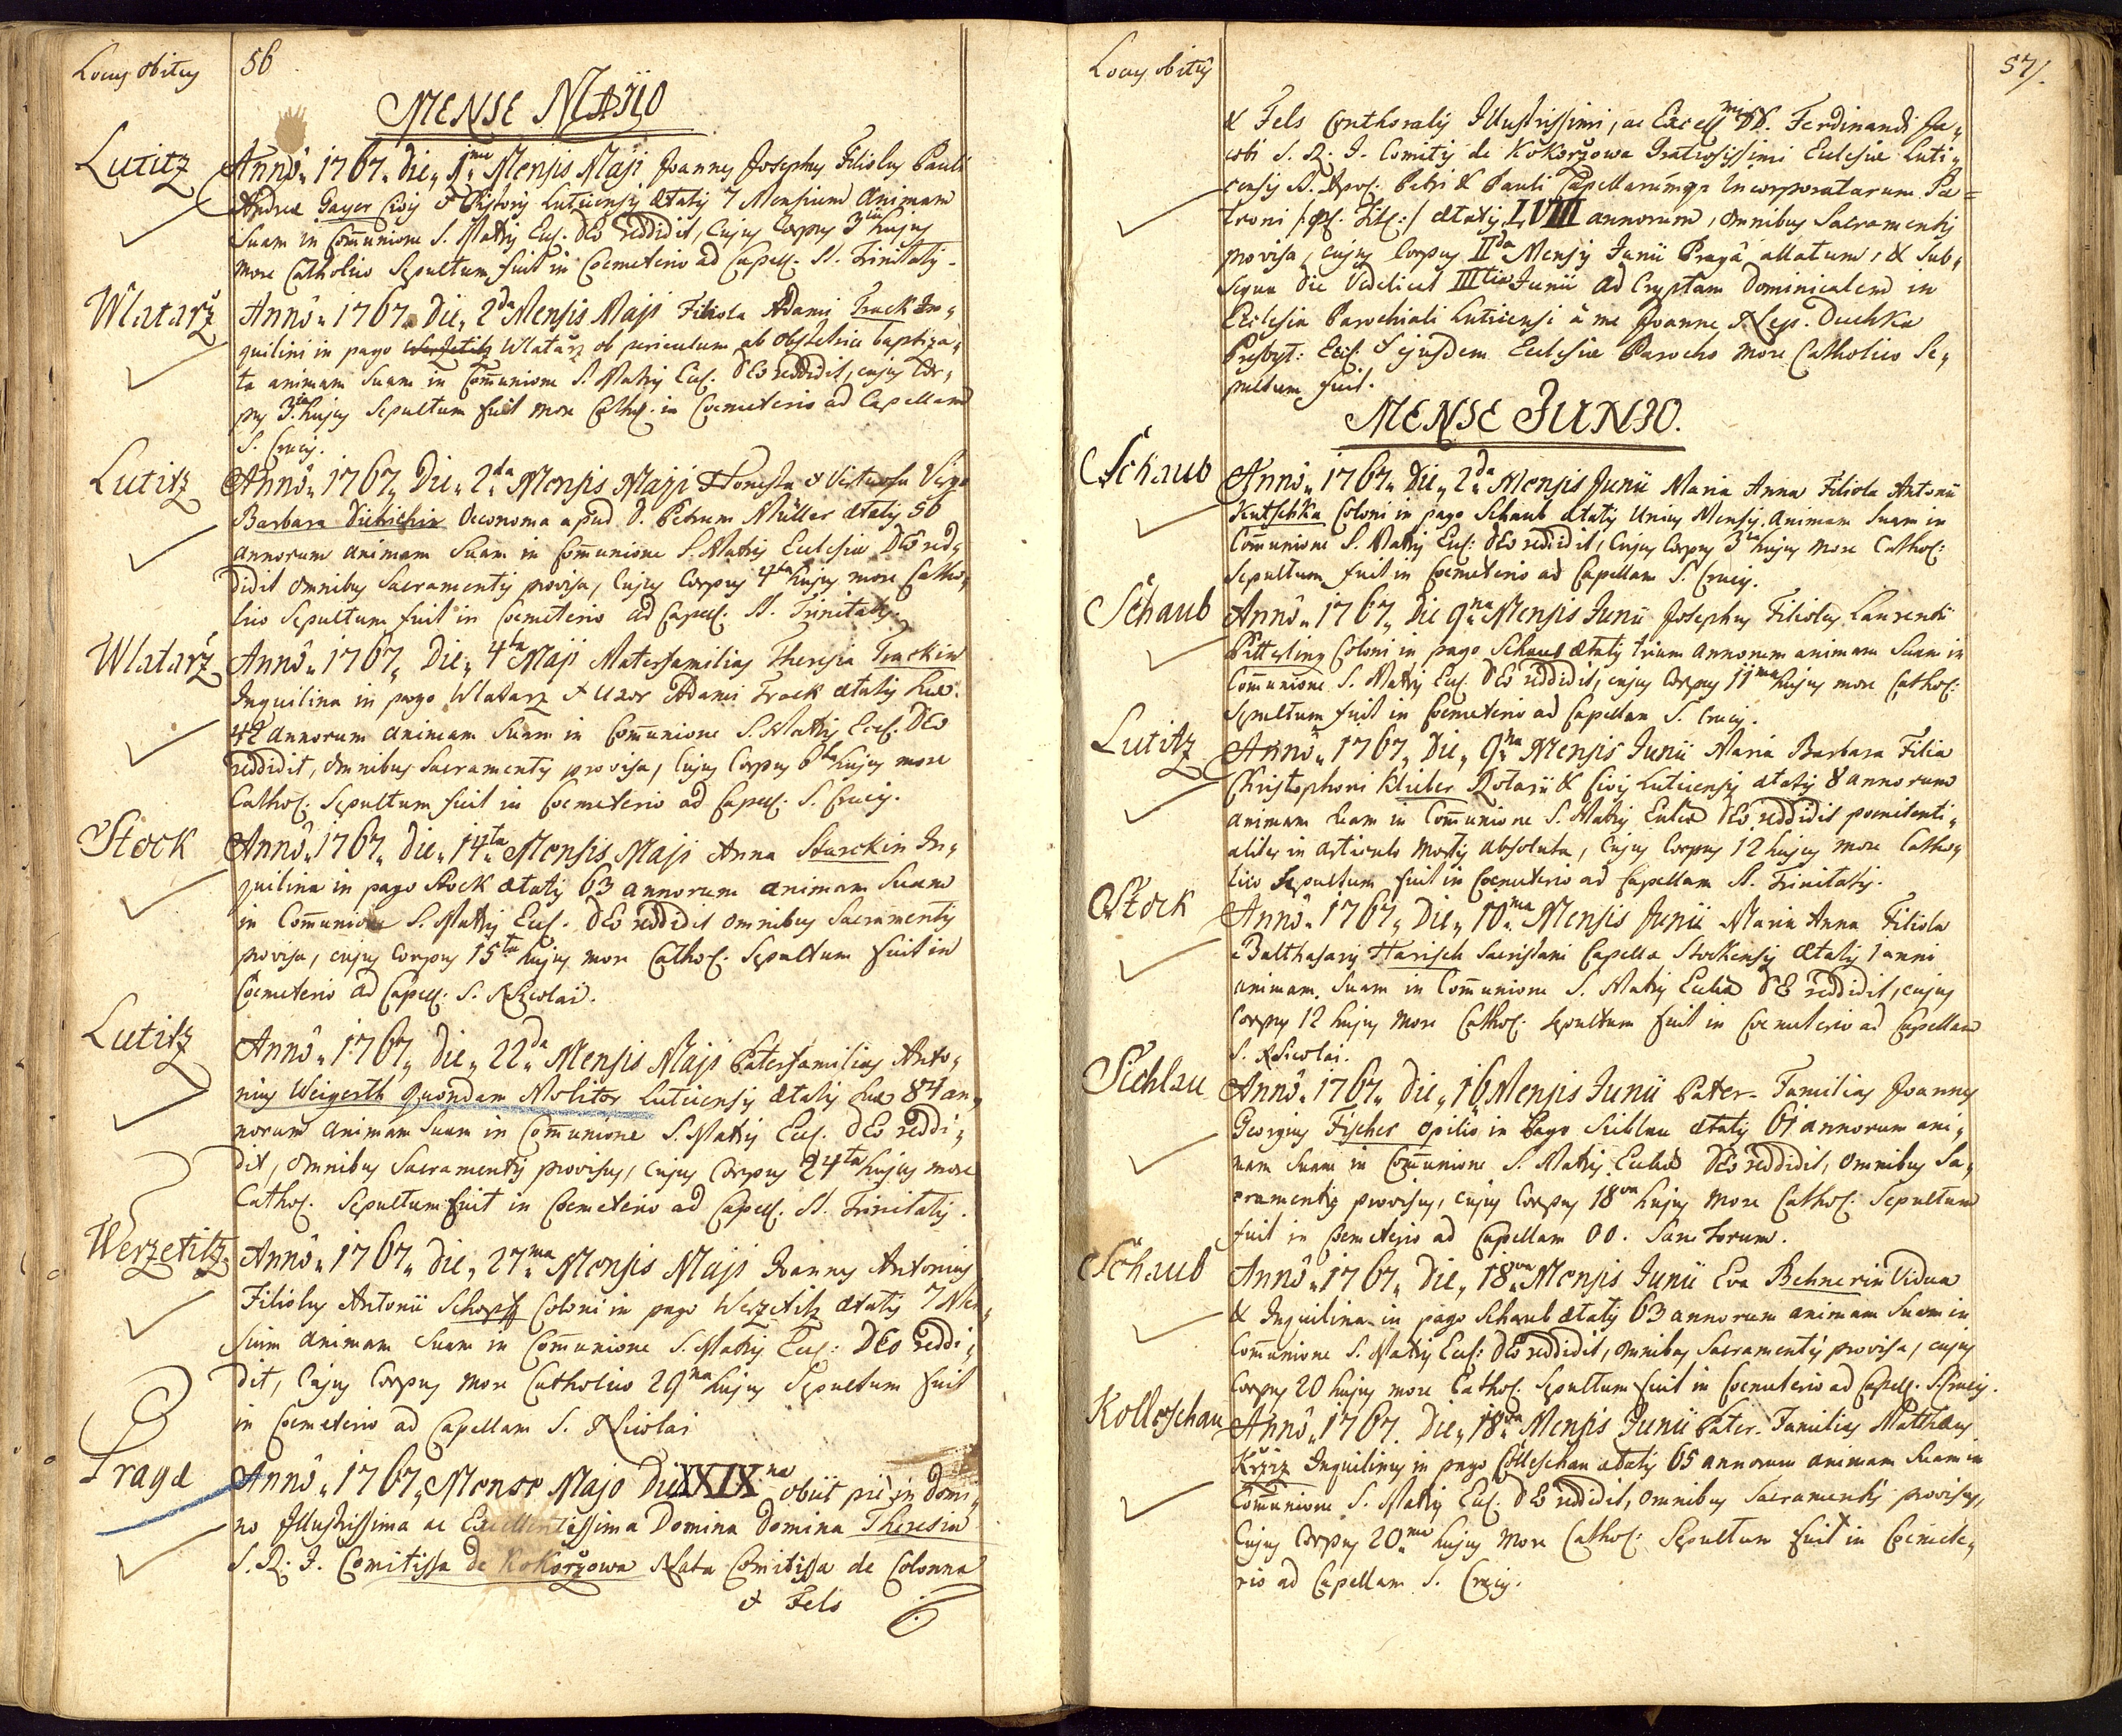 Locus obitus 56
MENSE MAJO
Lutitz
Anno 1767 die 1ma Mensis Maji Joannes Josephus Filiolus Pauli
Andreæ Gayer Civis & Pistoris Luticensis ætatis 7 Mensium animam
Suam in Com̄unione S. Matris Eccl. DEo reddidit, Cujus Corpus 3tia hujus
more Catholico Sepultum fuit in Coemeterio ad Capell. SS. Trinitatis.
Wlatarž
Anno 1767 Die 2da Mensis Maji Filiola Adami Track In„
quilini in pago Werzetitz Wlatarz ob periculum ab obstetrice baptiza„
ta animam Suam in Com̄unione S. Matris Eccl. DEo reddidit, cujus Cor„
pus 3tia hujus Sepultum fuit more Cathol. in Coemeterio ad Capellam
S. Crucis.
Lutitz
Anno 1767 Die 2da Mensis Maji Honesta & Virtuosa Virgo
Barbara Dietrichin Oeconoma apud D. Petrum Müller ætatis 56
annorum animam Suam in Com̄unione S. Matris Ecclesiæ DEo red„
didit omnibus Sacramentis provisa, Cujus Corpus 4ta hujus more Catho„
lico Sepultum fuit in Coemeterio ad Capell. SS. Trinitatis.
Wlatarž
Anno 1767 Die 4ta Maji Materfamilias Theresia Trackin
Inquilina in pago Wlatarz & Uxor Adami Track ætatis suæ
42 annorum animam Suam in Com̄unione S. Matris Eccl. DEo
reddidit, omnibus Sacramentis provisa, Cujus Corpus 6ta hujus more
Cathol. Sepultum fuit in Coemeterio ad Capell. S. Crucis.
Stock
Anno 1767 die 14ta Mensis Maji Anna Starckin In„
quilina in pago Stock ætatis 63 annorum animam Suam
in Com̄unione S. Matris Eccl. DEo reddidit omnibus Sacramentis
provisa, cujus Corpus 15ta hujus more Cathol. Sepultum fuit in
Coemeterio ad Capell. S. Nicolai.
Lutitz
Anno 1767 die 22da Mensis Maji Paterfamilias Anto„
nius Weigerth quondam Molitor Luticensis ætatis suæ 84 an„
norum animam Suam in Com̄unione S. Matris Eccl. DEo reddi„
dit, omnibus Sacramentis provisus, cujus Corpus 24ta hujus more
Cathol. Sepultum fuit in Coemeterio ad Capell. SS. Trinitatis.
Werzetitz
Anno 1767 die 27ma Mensis Maji Joannes Antonius
Filiolus Antonii Schopff Coloni in pago Werzetitz ætatis 7 Men„
sium animam Suam in Com̄unione S. Matris Eccl: DEo reddi„
dit, Cujus Corpus more Catholico 29na hujus Sepultum fuit
in Coemeterio ad Capellam S. Nicolai
Pragæ
Anno 1767 Mense Majo Die XXIXna obiit piè in Domi„
no Illustrissima ac Excellentissima Domina Domina Theresia
S. R. I. Comitissa de Kokoržowa Nata Comitissa de Colonna
& Fels
Locus obitus 57/.
& Fels Conthoralis Illustrissimi, ac Excellmi DD. Ferdinandi Ja„
cobi S. R. I. Comitis de Kokoržowa Gratiosissimi Ecclesiæ Luti„
censis SS. Apos. Petri & Pauli Capellarumq; Incorporatarum Pa=
troni /: Tit: / ætatis LVIII annorum, omnibus Sacramentis
provisa, cujus Corpus IIda Mensis Junii Pragâ allatum, & Sub„
sequa Die Videlicet IIItia Junii ad Cryptam Dominicalem in
Ecclesia Parochiali Luticensi à me Joanne Nep. Duchka
Presbyt: Eccl: & ejusdem Ecclesiæ Parocho more Catholico Se„
pultum fuit.
MENSE JUNIO.
Schaub
Anno 1767 Die 2da Mensis Junii Maria Anna Filiola Antonii
Kutschka Coloni in pago Schaub ætatis Unius Mensis Animam Suam in
Com̄unione S. Matris Eccl: DEo reddidit, Cujus Corpus 3tia hujus more Cathol:
Sepultum fuit in Coemeterio ad Capellam S. Crucis.
Schaub
Anno 1767 Die 9na Mensis Junii Josephus Filiolus Laurentii
Pitterling Coloni in pago Schaub ætatis trium annorum animam Suam in
Com̄unione S. Matris Eccl. DEo reddidit, cujus Corpus 11ma hujus more Cathol:
Sepultum fuit in Coemeterio ad Capellam S. Crucis.
Lutitz
Anno 1767 Die 9na Mensis Junii Maria Barbara Filia
Christophori Klieber Rotarii & Civis Luticensis ætatis 8 annorum
animam suam in Com̄unione S. Matris Eccliæ DEo reddidit poenitenti„
aliter in articulo Mortis absoluta, Cujus Corpus 12 hujus more Catho„
lico Sepultum fuit in Coemeterio ad Capellam SS. Trinitatis.
Stock
Anno 1767 Die 10ma Mensis Junii Maria Anna Filiola
Balthasaris Harisch Sacristani Capellæ Stockensis ætatis 1 anni
animam Suam in Com̄unione S. Matris Eccliæ DEo reddidit, cujus
Corpus 12 hujus more Cathol: Sepultum fuit in Coemeterio ad Capellam
S. Nicolai.
Sichlau
Anno 1767 Die 16 Mensis Junii Pater-Familias Joannes
Georgius Fischer opilio in Pago Sichlau ætatis 61 annorum ani„
mam suam in Com̄unione S. Matris Eccliæ DEo reddidit, omnibus Sa„
cramentis provisus, cujus Corpus 18va hujus more Cathol: Sepultum
fuit in Coemeterio ad Capellam OO. Sanctorum.
Schaub
Anno 1767 Die 18va Mensis Junii Eva Behnerin Vidua
& Inquilina in pago Schaub ætatis 63 annorum animam Suam in
Com̄unione S. Matris Eccl: DEo reddidit, omnibus Sacramentis provisa, cujus
Corpus 20 hujus more Cathol. Sepultum fuit in Coemeterio ad Capell. S. Crucis.
Kolleschau
Anno 1767. Die 18va Mensis Junii Pater-Familias Matthæus
Kržiz Inquilinus in pago Colleschau ætatis 65 annorum animam Suam in
Com̄unione S. Matris Eccl. DEo reddidit, omnibus Sacramentis provisus,
Cujus Corpus 20ma hujus more Cathol: Sepultum fuit in Coemete„
rio ad Capellam S. Crucis.